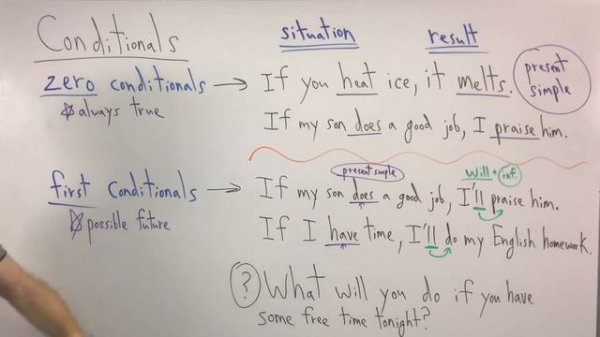 Conditionals
situation result
zero conditionals → If you heat ice, it melts.
present simple
☆ always true
If my son does a good job, I praise him.
present simple
will + inf.
first conditionals → If my son does a good job, I'll praise him.
☆ possible future
If I have time, I'll do my English homework.
? What will you do if you have
some free time tonight?